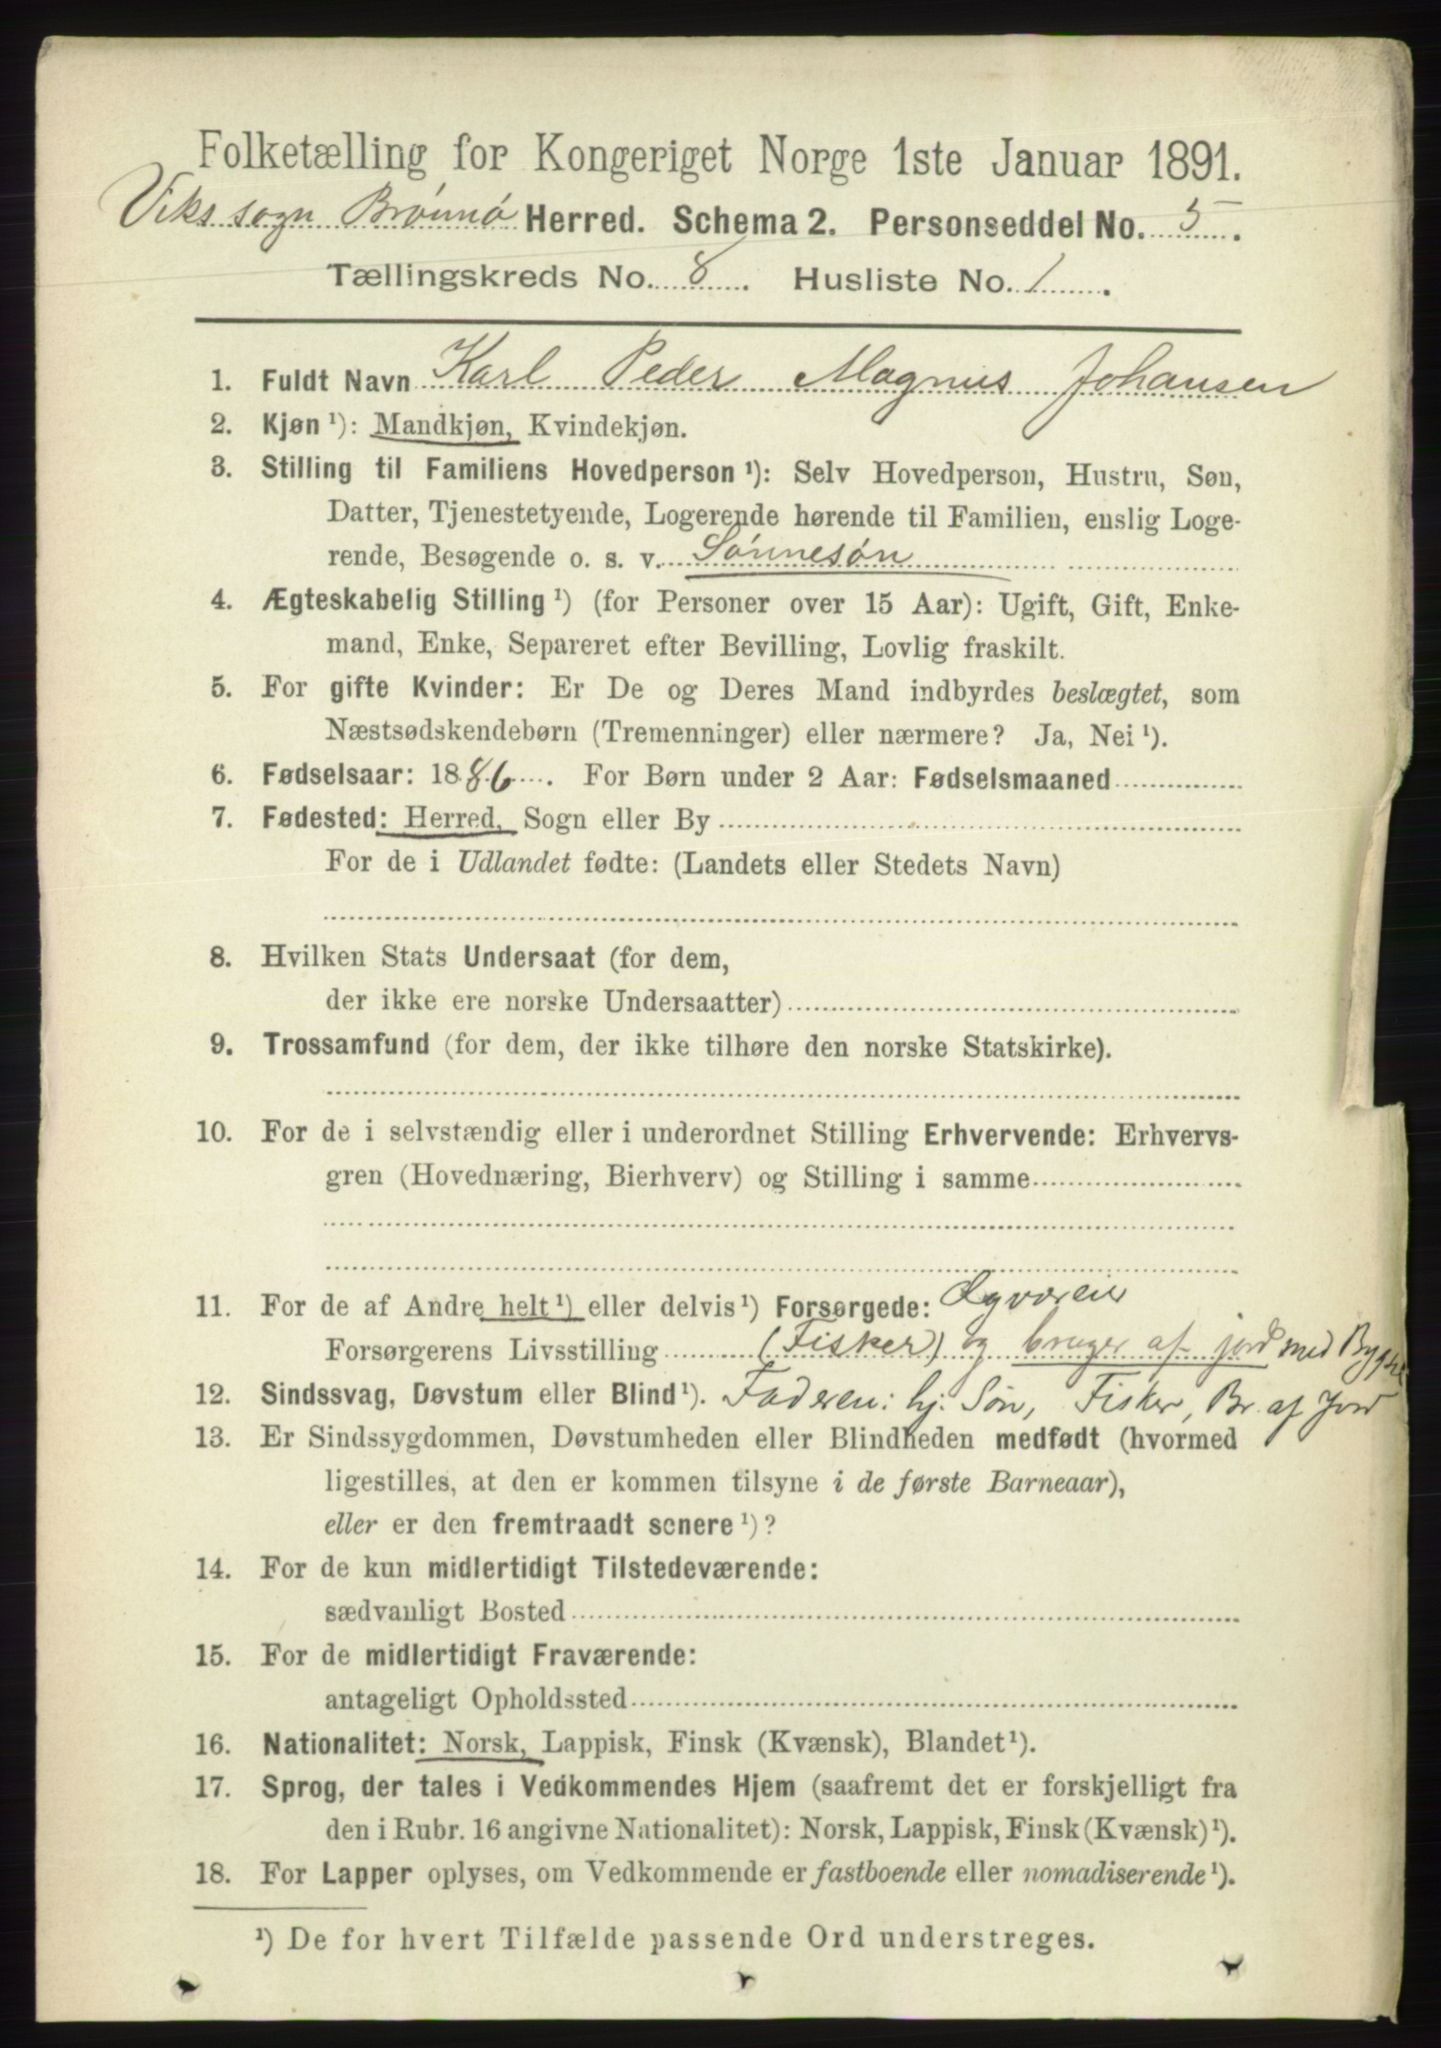 Folketælling for Kongeriget Norge 1ste Januar 1891.
Viks sogn Brønnø Herred. Schema 2. Personseddel No. 5.
Tællingskreds No. 8. Husliste No. 1.
1. Fuldt Navn Karl Peder Magnus Johansen
2. Kjøn ¹): Mandkjøn, Kvindekjøn.
3. Stilling til Familiens Hovedperson ¹): Selv Hovedperson, Hustru, Søn,
Datter, Tjenestetyende, Logerende hørende til Familien, enslig Loge-
rende, Besøgende o. s. v. Sønnesøn
4. Ægteskabelig Stilling ¹) (for Personer over 15 Aar): Ugift, Gift, Enke-
mand, Enke, Separeret efter Bevilling, Lovlig fraskilt.
5. For gifte Kvinder: Er De og Deres Mand indbyrdes beslægtet, som
Næstsødskendebørn (Tremenninger) eller nærmere? Ja, Nei ¹).
6. Fødselsaar: 1886. For Børn under 2 Aar: Fødselsmaaned
7. Fødested: Herred, Sogn eller By
For de i Udlandet fødte: (Landets eller Stedets Navn)
8. Hvilken Stats Undersaat (for dem,
der ikke ere norske Undersaatter)
9. Trossamfund (for dem, der ikke tilhøre den norske Statskirke).
10. For de i selvstændig eller i underordnet Stilling Erhvervende: Erhvervs-
gren (Hovednæring, Bierhverv) og Stilling i samme
11. For de af Andre helt ¹) eller delvis ¹) Forsørgede:
Forsørgerens Livsstilling (Fisker) og bruger af jord med
12. Sindssvag, Døvstum eller Blind ¹). Faderen: hj. Søn, Fisker, Br. af Jord
13. Er Sindssygdommen, Døvstumheden eller Blindheden medfødt (hvormed
ligestilles, at den er kommen tilsyne i de første Barneaar),
eller er den fremtraadt senere ¹)?
14. For de kun midlertidigt Tilstedeværende:
sædvanligt Bosted
15. For de midlertidigt Fraværende:
antageligt Opholdssted
16. Nationalitet: Norsk, Lappisk, Finsk (Kvænsk), Blandet ¹).
17. Sprog, der tales i Vedkommendes Hjem (saafremt det er forskjelligt fra
den i Rubr. 16 angivne Nationalitet): Norsk, Lappisk, Finsk (Kvænsk) ¹).
18. For Lapper oplyses, om Vedkommende er fastboende eller nomadiserende ¹).
¹) De for hvert Tilfælde passende Ord understreges.